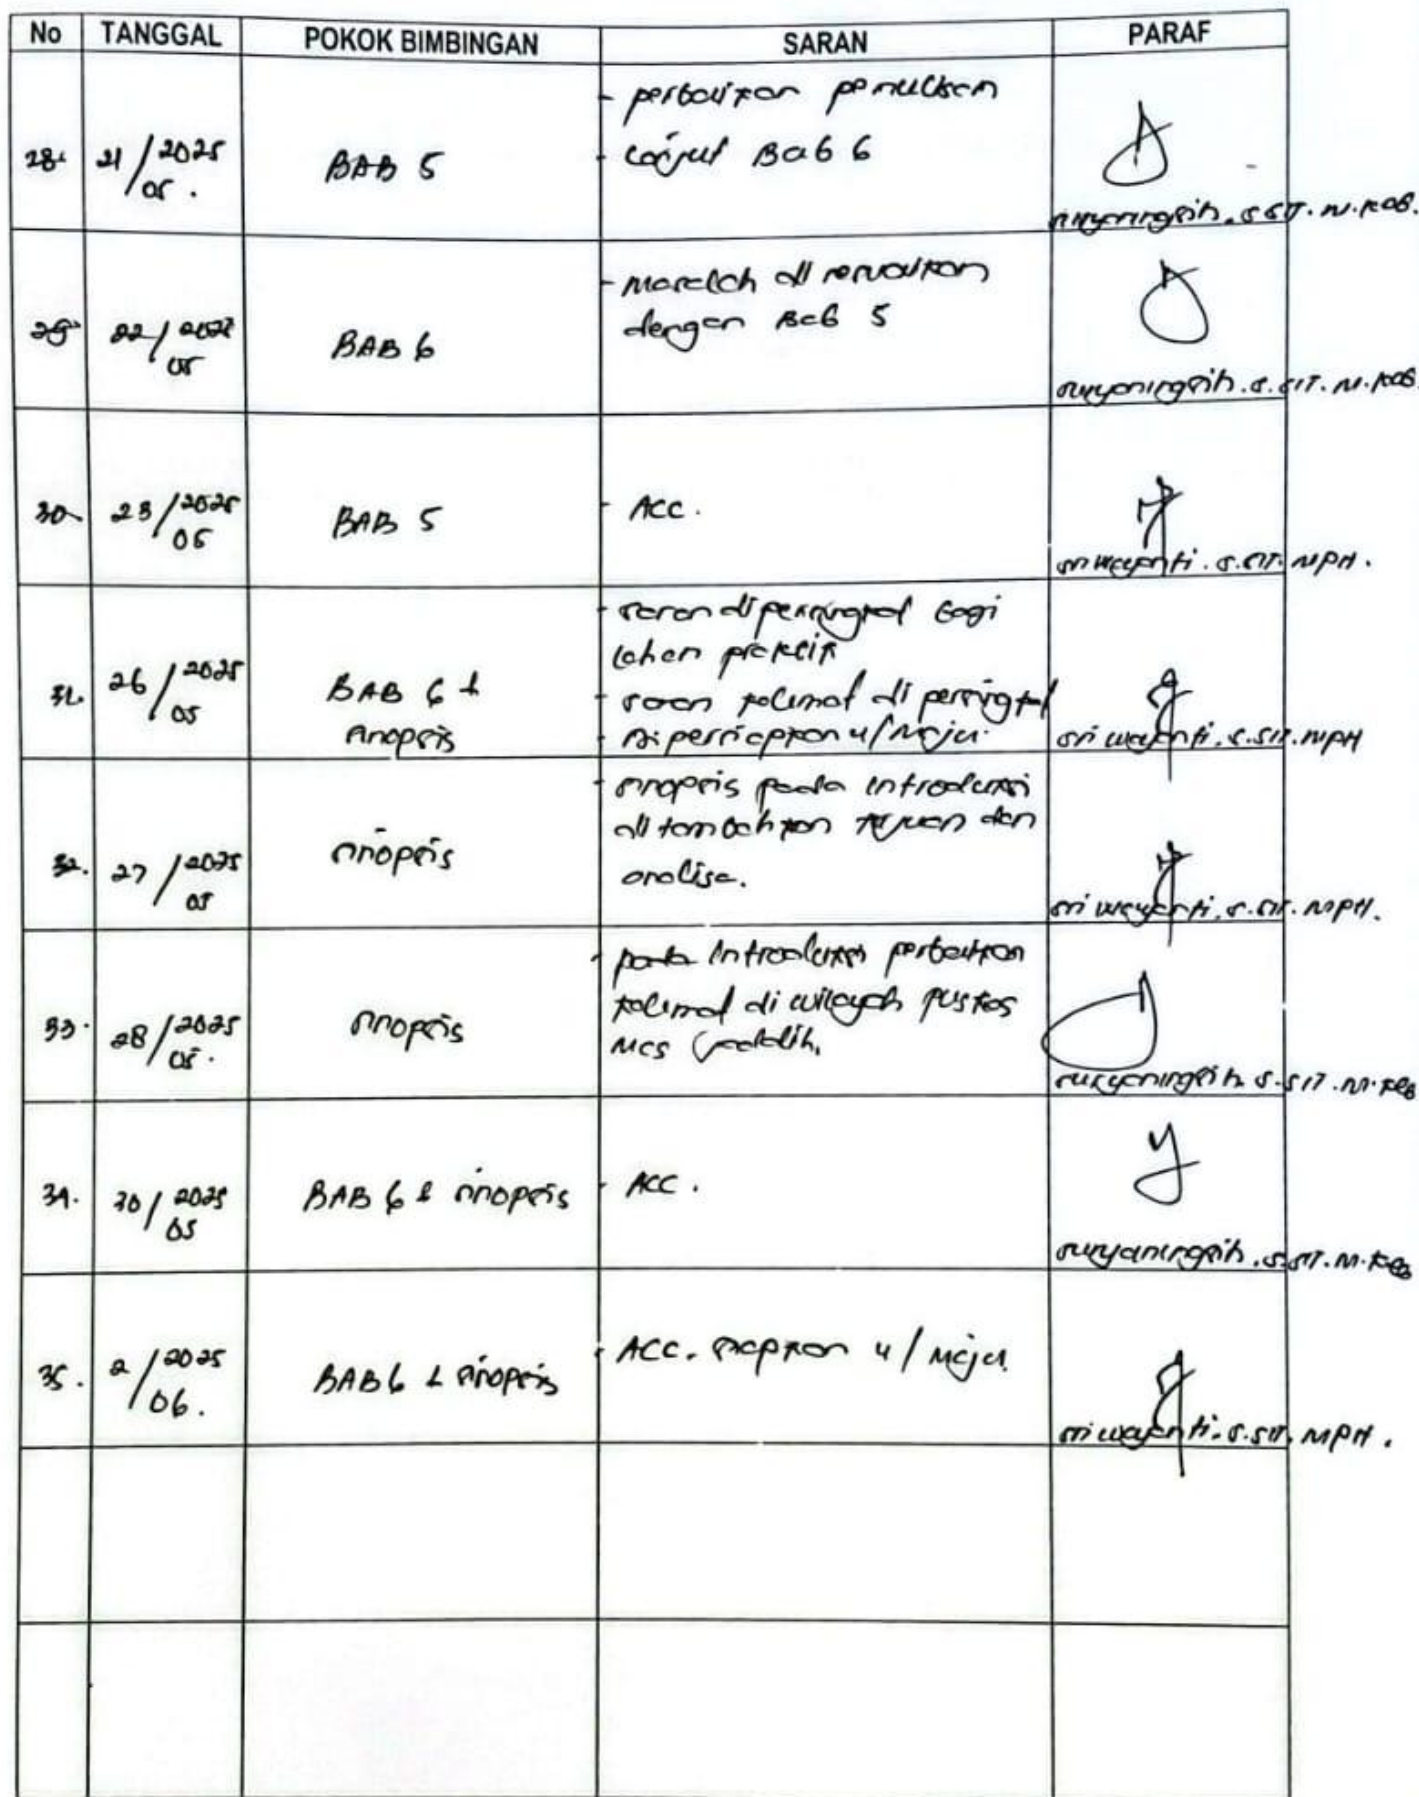 No TANGGAL POKOK BIMBINGAN SARAN PARAF
28. 21/2025 05. BAB 5
- perbaikan penulisan
- lanjut Bab 6
suryaningsih. S.SiT. M.Keb.
29. 22/2025 05 BAB 6
- masalah di sesuaikan
dengan Bab 5
suryaningsih. S.SiT. M.Keb.
30. 23/2025 05 BAB 5
- ACC.
sri wayanti. S.SiT. MPH.
31. 26/2025 05 BAB 6 & sinopsis
- saran dipersingkat bagi
lahan praktik
- saran kalimat di persingkat
- dipersiapkan u/ Maju.
sri wayanti. S.SiT. MPH
32. 27/2025 05 sinopsis
- sinopsis pada introduksi
ditambahkan tujuan dan
analisa.
sri wayanti. S.SiT. MPH.
33. 28/2025 05. sinopsis
- pada introduksi perbaikan
kalimat di wilayah puskes
mas
suryaningsih. S.SiT. M.Keb
34. 30/2025 05 BAB 6 & sinopsis
- ACC.
suryaningsih. S.SiT. M.Keb
35. 2/2025 06. BAB 6 & sinopsis
- ACC. siapkan u/ Maju.
sri wayanti. S.SiT. MPH.